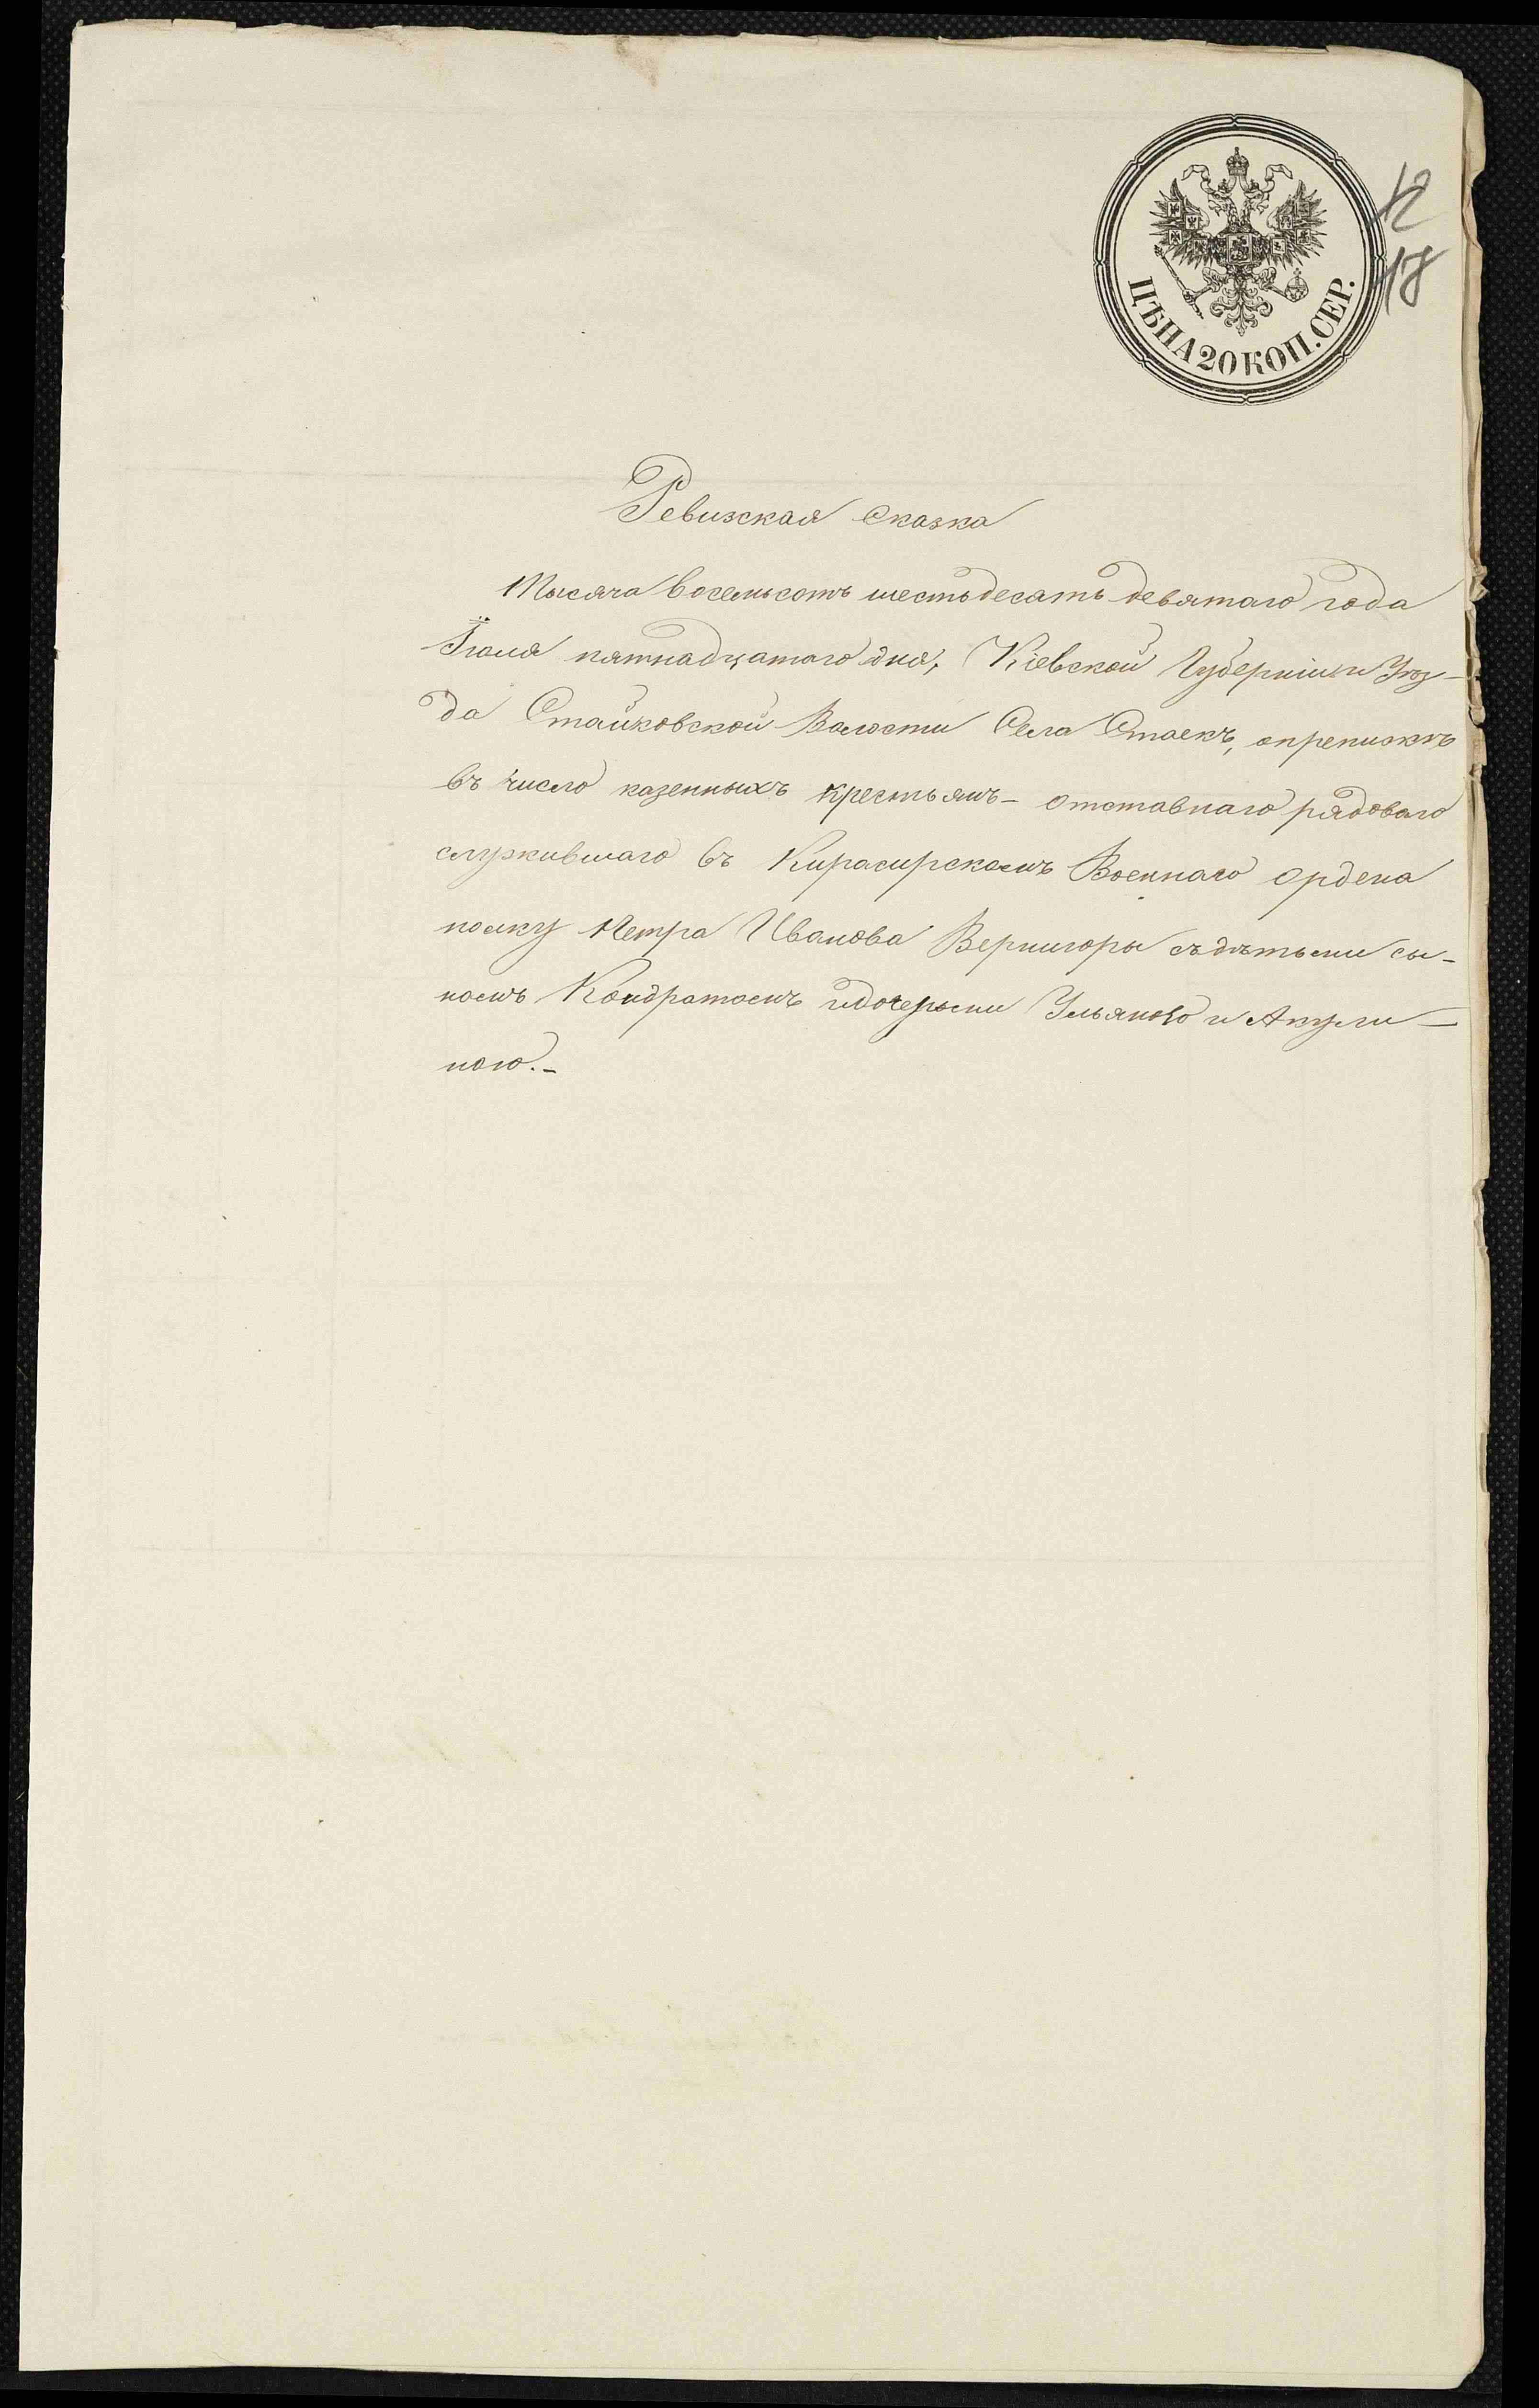 ЦѢНА 20 КОП. СЕР.
12
18
Ревизская сказка
Тысяча восемьсотъ шестьдесятъ девятаго года
Іюля пятнадцатаго дня, Кіевской Губерніи и Уѣз-
да Стайковской Волости Села Стаекъ, опрепискѣ
въ число казенныхъ крестьянъ - отставнаго рядоваго
служившаго въ Кирасирскомъ Военнаго ордена
полку Петра Иванова Вернигоры съ дѣтьми сы-
номъ Кондратомъ и дочерьми Ульяною и Акули-
ною.-